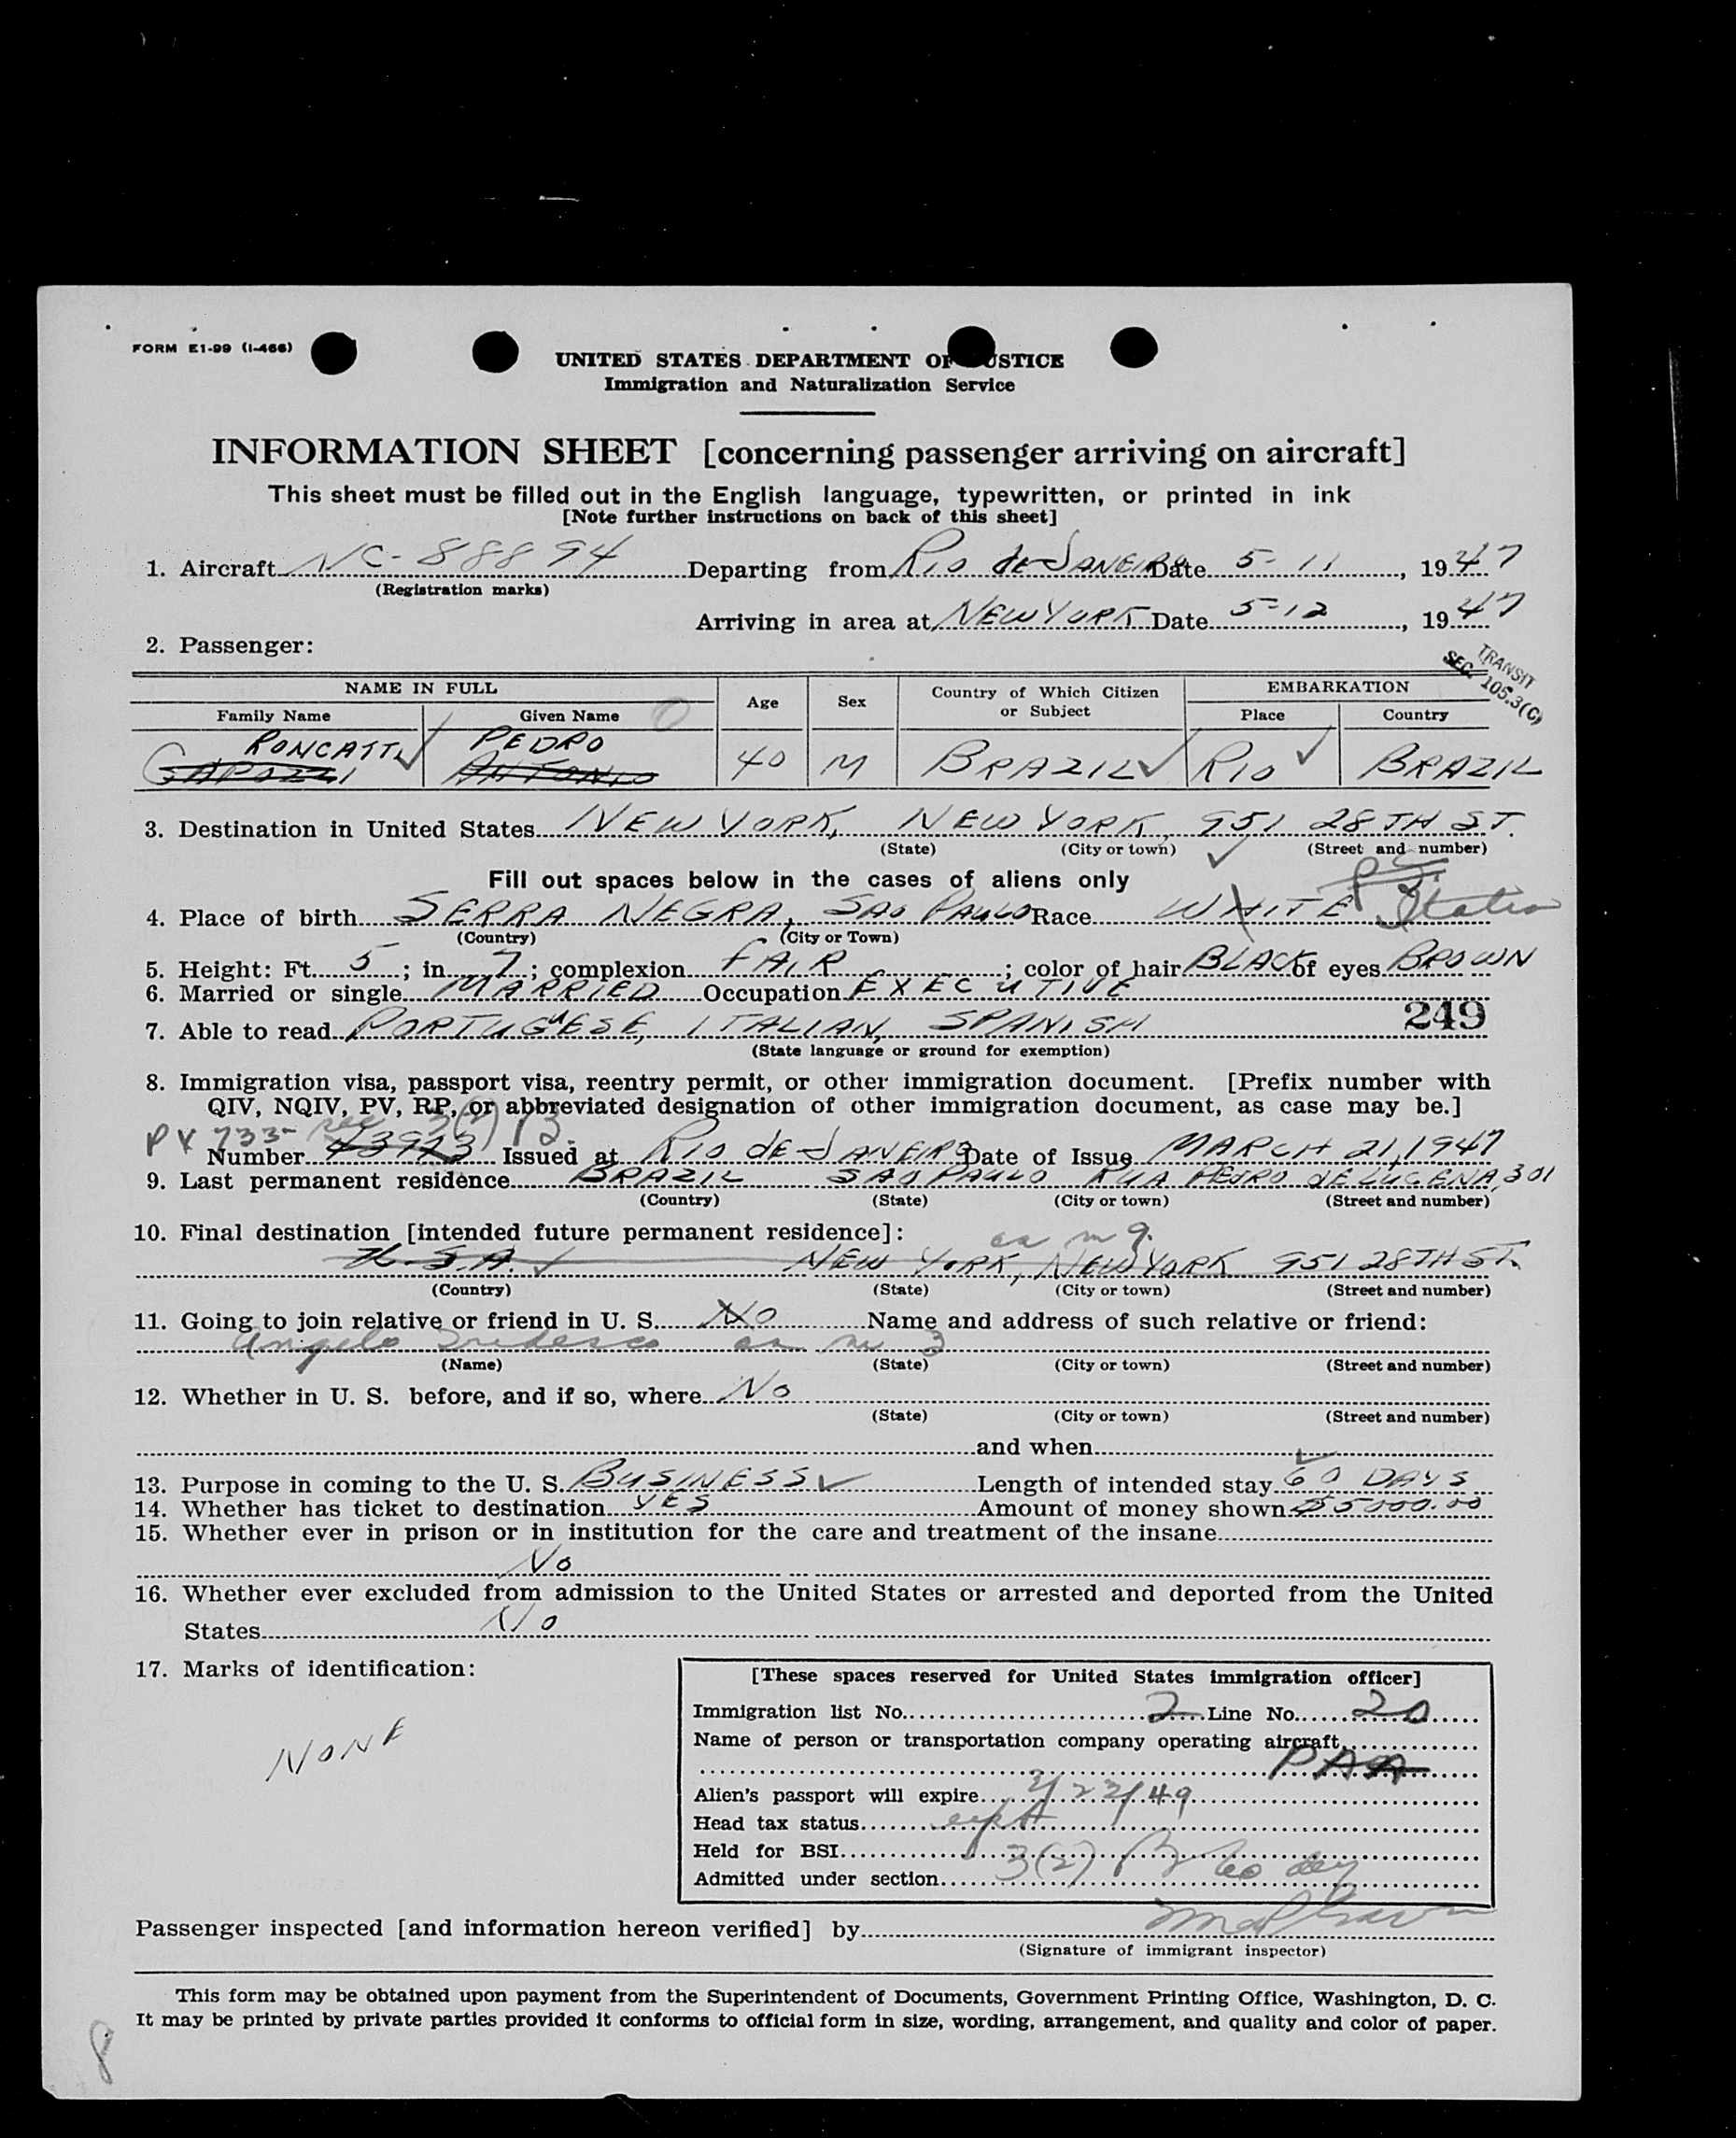 FORM E1-99 (I-466)
UNITED STATES DEPARTMENT OF JUSTICE
Immigration and Naturalization Service
INFORMATION SHEET [concerning passenger arriving on aircraft]
This sheet must be filled out in the English language, typewritten, or printed in ink
[Note further instructions on back of this sheet]
1. Aircraft NC-88894 Departing from RIO de JANEIRO Date 5-11, 1947
(Registration marks)
Arriving in area at NEW YORK Date 5-12, 1947
2. Passenger:
TRANSIT
SEC. 105.3(C)
NAME IN FULL Age Sex Country of Which Citizen or Subject EMBARKATION
Family Name Given Name Place Country
RONCATTI PEDRO
GAPOZZI ANTONIO 40 M BRAZIL RIO BRAZIL
3. Destination in United States NEW YORK, NEW YORK, 951 28TH ST.
(State) (City or town) (Street and number)
Fill out spaces below in the cases of aliens only
4. Place of birth SERRA NEGRA, SAO PAULO Race WHITE
(Country) (City or Town)
5. Height: Ft. 5; in. 7; complexion FAIR; color of hair BLACK of eyes BROWN
6. Married or single MARRIED Occupation EXECUTIVE
249
7. Able to read PORTUGUESE, ITALIAN, SPANISH
(State language or ground for exemption)
8. Immigration visa, passport visa, reentry permit, or other immigration document. [Prefix number with
QIV, NQIV, PV, RP, or abbreviated designation of other immigration document, as case may be.]
PV 733 sec 3(2) B.
Number 43923 Issued at RIO de JANEIRO Date of Issue MARCH 21, 1947
9. Last permanent residence BRAZIL SAO PAULO RUA PEDRO de LUCENA, 301
(Country) (State) (City or town) (Street and number)
10. Final destination [intended future permanent residence]:
as in 9.
U.S.A. NEW YORK, NEW YORK 951 28TH ST.
(Country) (State) (City or town) (Street and number)
11. Going to join relative or friend in U. S. NO Name and address of such relative or friend:
Angelo as in 3
(Name) (State) (City or town) (Street and number)
12. Whether in U. S. before, and if so, where NO
(State) (City or town) (Street and number)
and when
13. Purpose in coming to the U. S. BUSINESS Length of intended stay 60 DAYS
14. Whether has ticket to destination YES Amount of money shown $5000.00
15. Whether ever in prison or in institution for the care and treatment of the insane
No
16. Whether ever excluded from admission to the United States or arrested and deported from the United
States No
17. Marks of identification:
NONE
[These spaces reserved for United States immigration officer]
Immigration list No. 2 Line No. 20
Name of person or transportation company operating aircraft
PAA
Alien's passport will expire 2/22/49
Head tax status expt
Held for BSI
Admitted under section 3(2) B 60 dey
Passenger inspected [and information hereon verified] by
(Signature of immigrant inspector)
This form may be obtained upon payment from the Superintendent of Documents, Government Printing Office, Washington, D. C.
It may be printed by private parties provided it conforms to official form in size, wording, arrangement, and quality and color of paper.
8